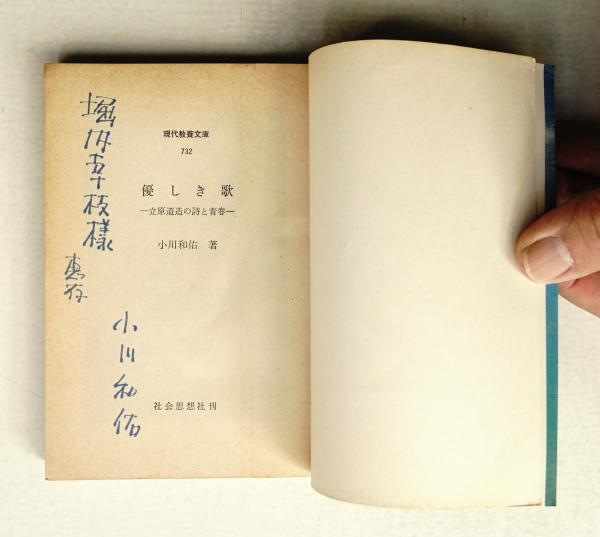 現代教養文庫
732
優しき歌
—立原道造の詩と青春—
小川和佑 著
社会思想社刊
堀内幸枝様
恵存
小川和佑